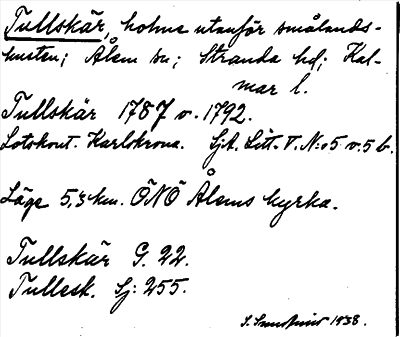 Tullskär, holme utanför smålands-
kusten; Ålem sn; Stranda hd; Kal-
mar l.
Tullskär 1787 o. 1792.
Lotskont. Karlskrona. SjA. Litt. V. N:o 5 o. 5 b.
Läge 5,3 km. ÖNÖ Ålems kyrka.
Tullskär G. 22.
Tullesk. Sj: 255.
1938.